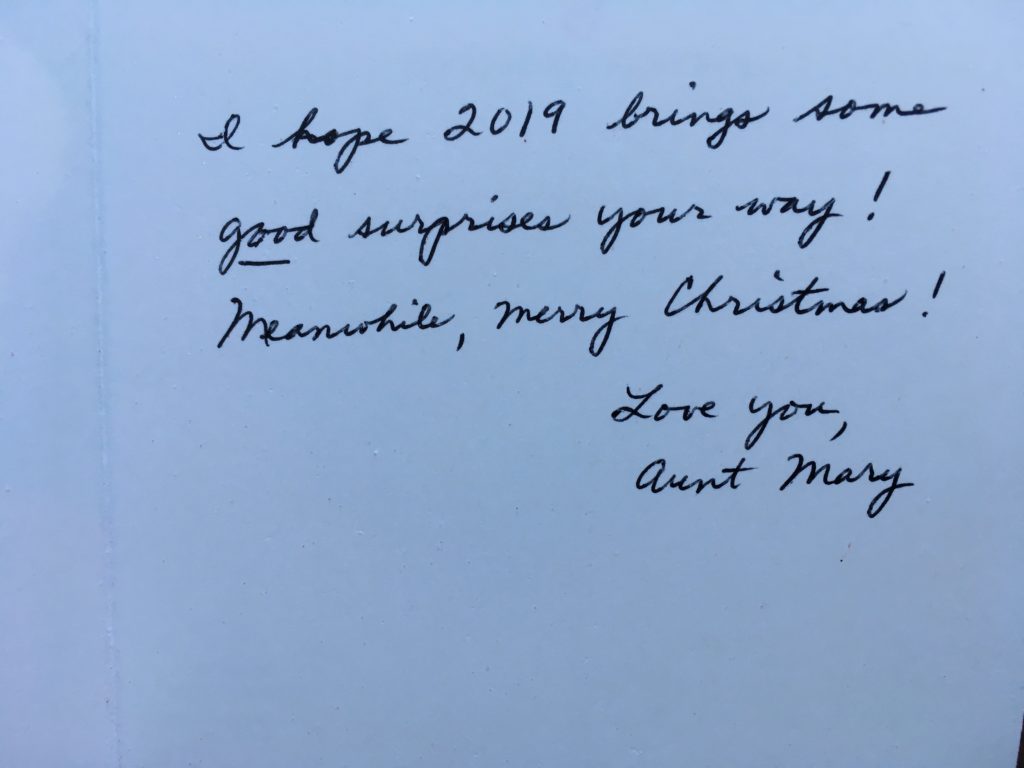 I hope 2019 brings some
good surprises your way!
Meanwhile, merry Christmas!
Love you,
Aunt Mary